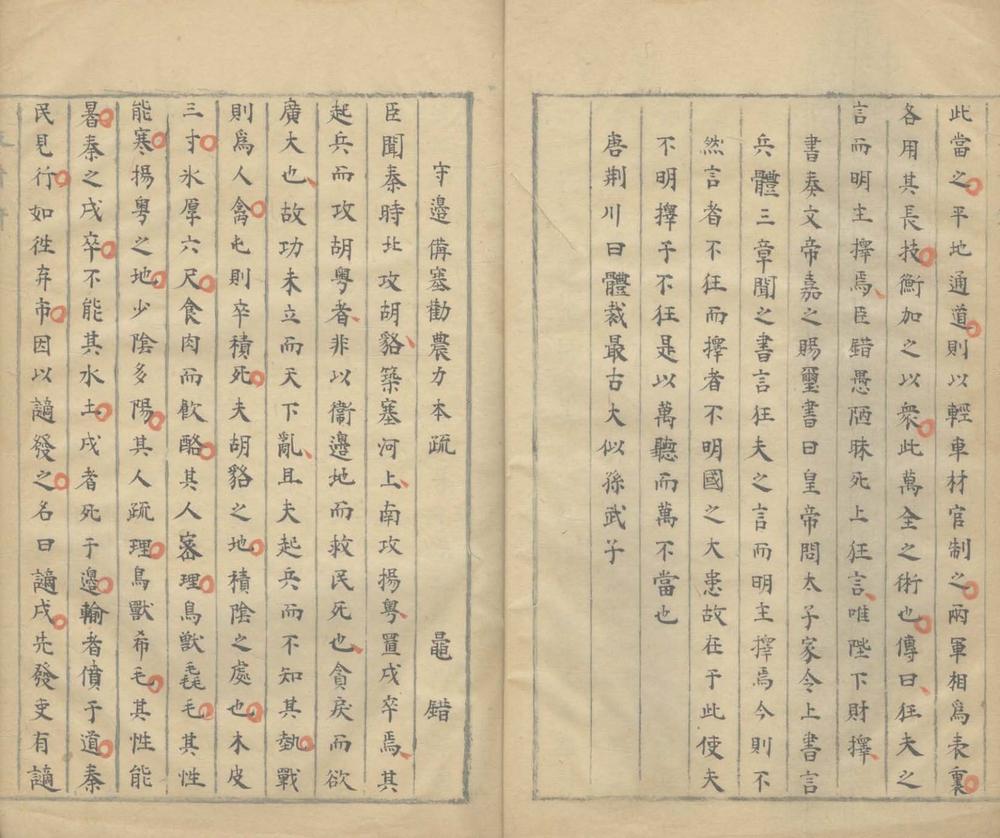 此當之平地通道則以輕車材官制之兩軍相爲表裏
各用其長技衡加之以衆此萬全之術也傳曰狂夫之
言而明主擇焉臣錯愚陋昧死上狂言唯陛下財擇
書奏文帝嘉之賜璽書曰皇帝問太子家令上書言
兵體三章聞之書言狂夫之言而明主擇焉今則不
然言者不狂而擇者不明國之大患故在于此使夫
不明擇于不狂是以萬聽而萬不當也
唐荆川曰體裁最古大似孫武子
守邊備塞勸農力本疏 鼂錯
臣聞秦時北攻胡貉築塞河上南攻揚粵置戍卒焉其
起兵而攻胡粵者非以衞邊地而救民死也貪戾而欲
廣大也故功未立而天下亂且夫起兵而不知其埶戰
則爲人禽屯則卒積死夫胡貉之地積陰之處也木皮
三寸氷厚六尺食肉而飮酪其人密理鳥獸毳毛其性
能寒揚粵之地少陰多陽其人疏理鳥獸希毛其性能
暑秦之戍卒不能其水土戍者死于邊輸者僨于道秦
民見行如徃弃市因以讁發之名曰讁戍先發吏有讁